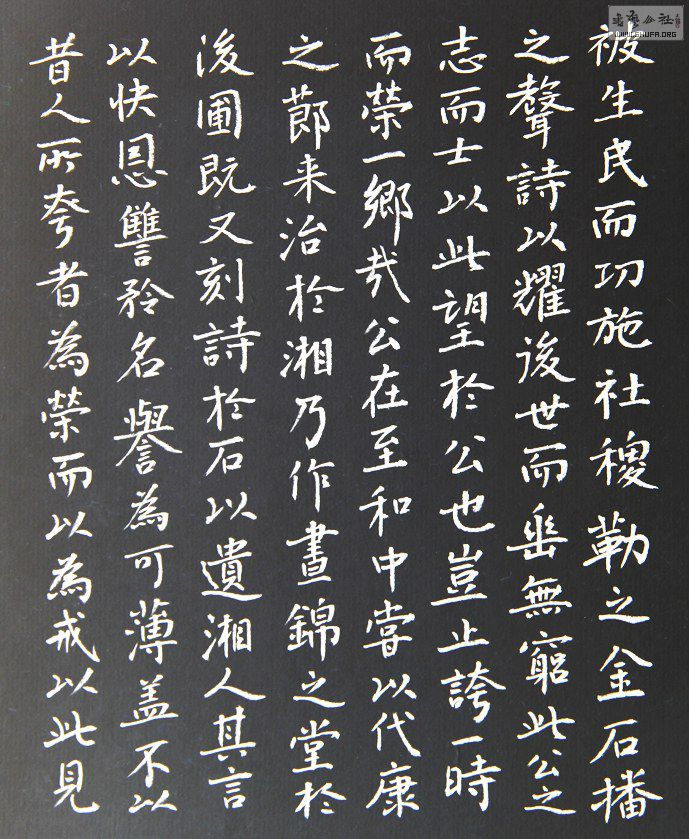 被生民而功施社稷勒之金石播
之聲詩以耀後世而垂無窮此公之
志而士以此望於公也豈止誇一時
而榮一鄉哉公在至和中甞以代康
之節来治於湘乃作晝錦之堂於
後圃既又刻詩於石以遺湘人其言
以快恩讐矜名譽為可薄盖不以
昔人所夸者為榮而以為戒以此見
書藝公社
WWW.SHUFA.ORG